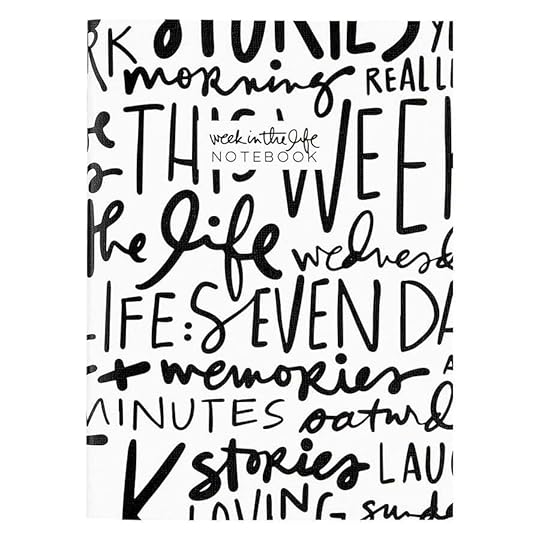 RK STORIES
morning REALL
THIS WEE
week in the life
NOTEBOOK
the life wednesd
LIFE: SEVEN DA
+ memories
MINUTES saturd
K stories LAU
LOVING - sunda